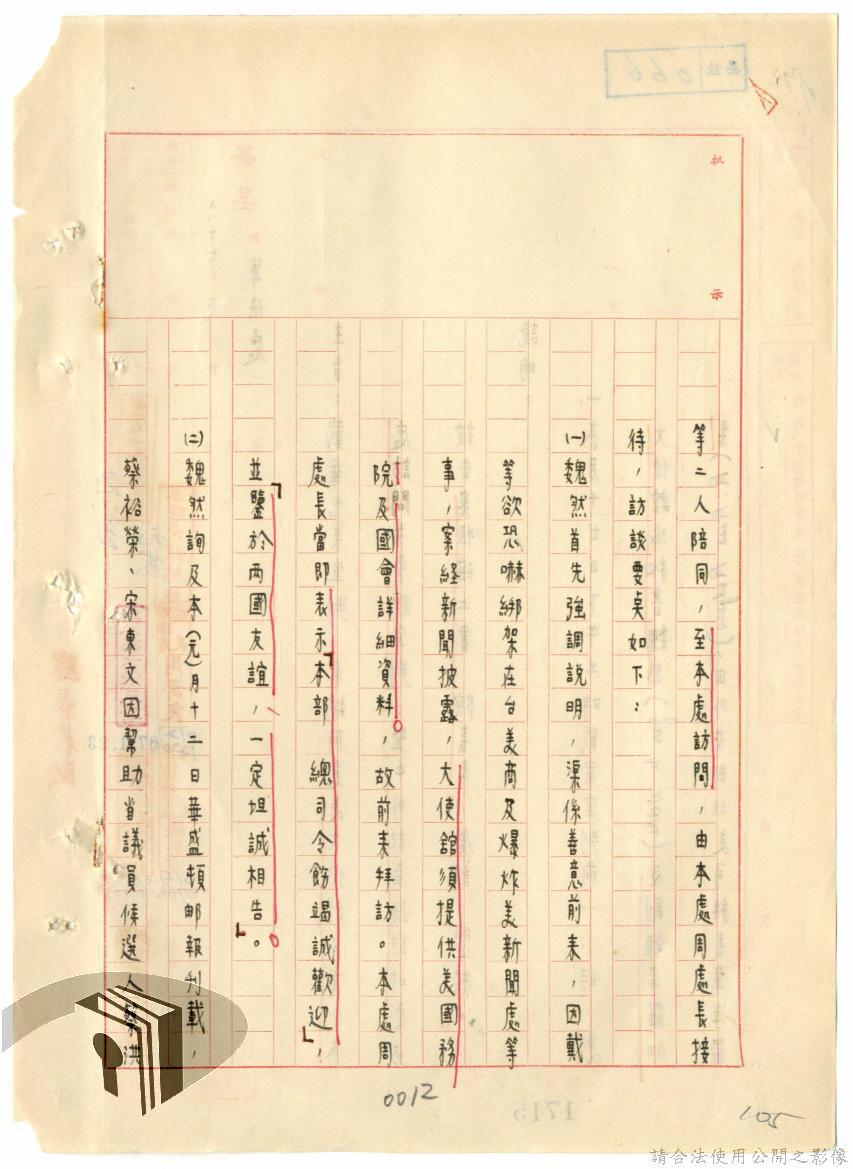 批示
等二人陪同，至本處訪問，由本處周處長接
待，訪談要点如下：
(一)魏然首先強調説明，渠係善意前来，因戴
等欲恐嚇綁架在台美商及爆炸美新聞處等
事，案経新聞披露，大使舘須提供美國務
院及國會詳細資料，故前来拜訪。本處周
處長當即表示「本部　總司令飭竭誠歡迎」，
並「鑒於两國友誼，一定坦誠相告。」
(二)魏然詢及本(元)月十二日華盛頓邮報刊載，
蔡裕榮、宋東文因幫助省議員候選人蔡洪
0012
105
066
1715
請合法使用公開之影像